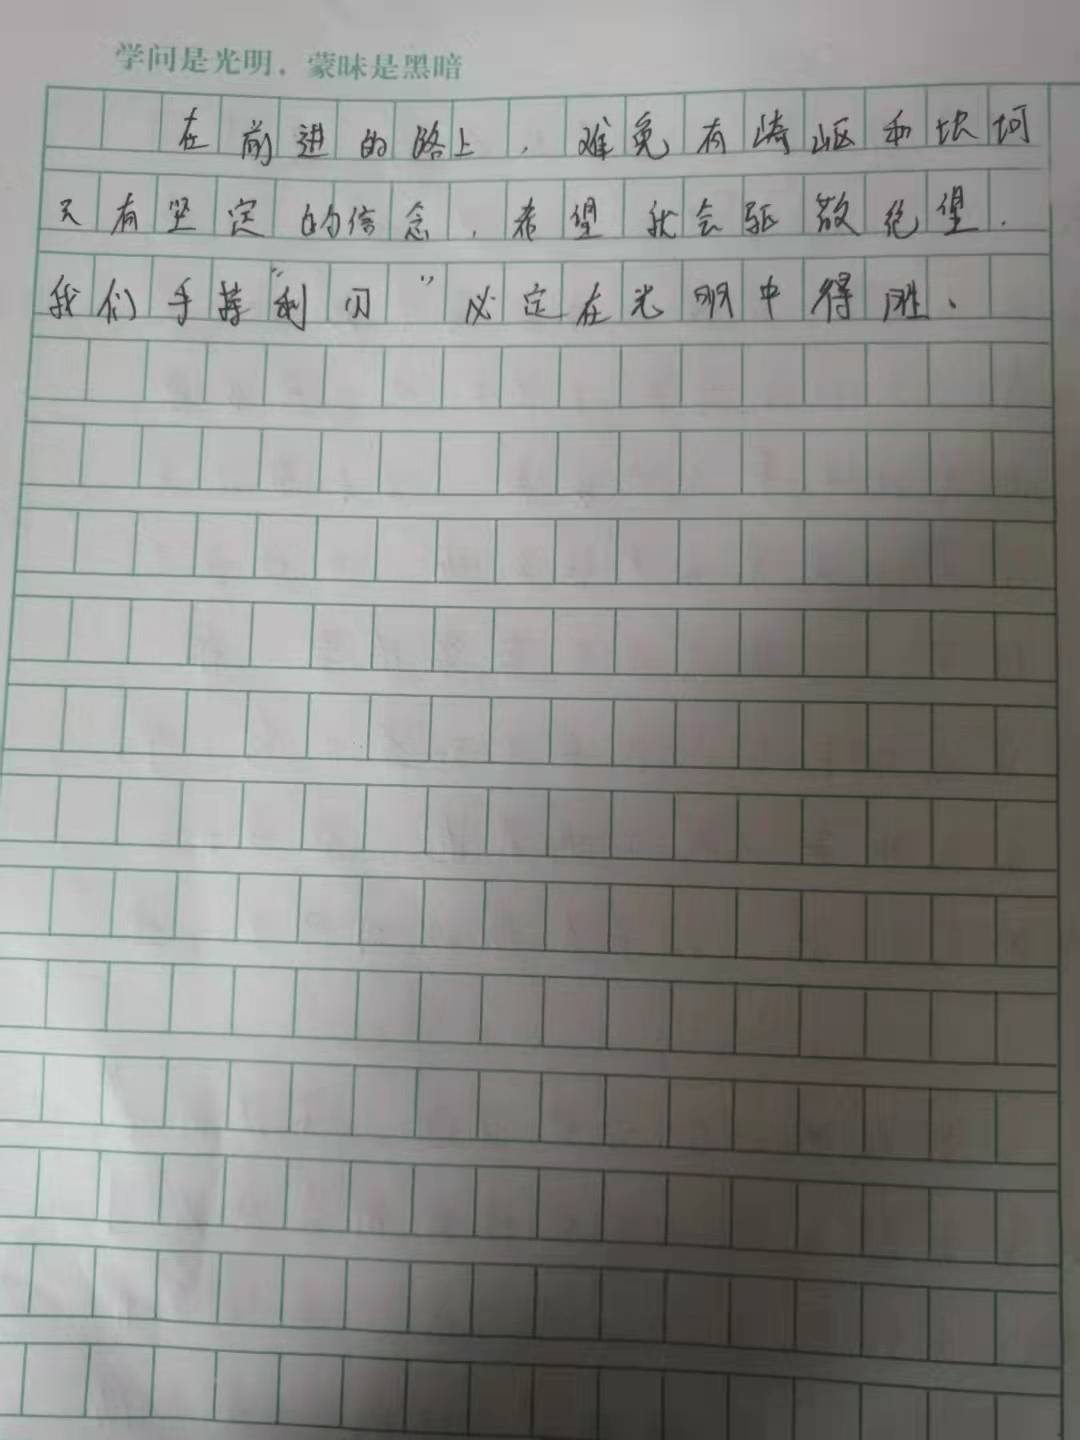 学问是光明，蒙昧是黑暗
在前进的路上，难免有崎岖和坎坷
只有坚定的信念，希望就会驱散绝望．
我们手持“利刃”必定在光明中得胜、